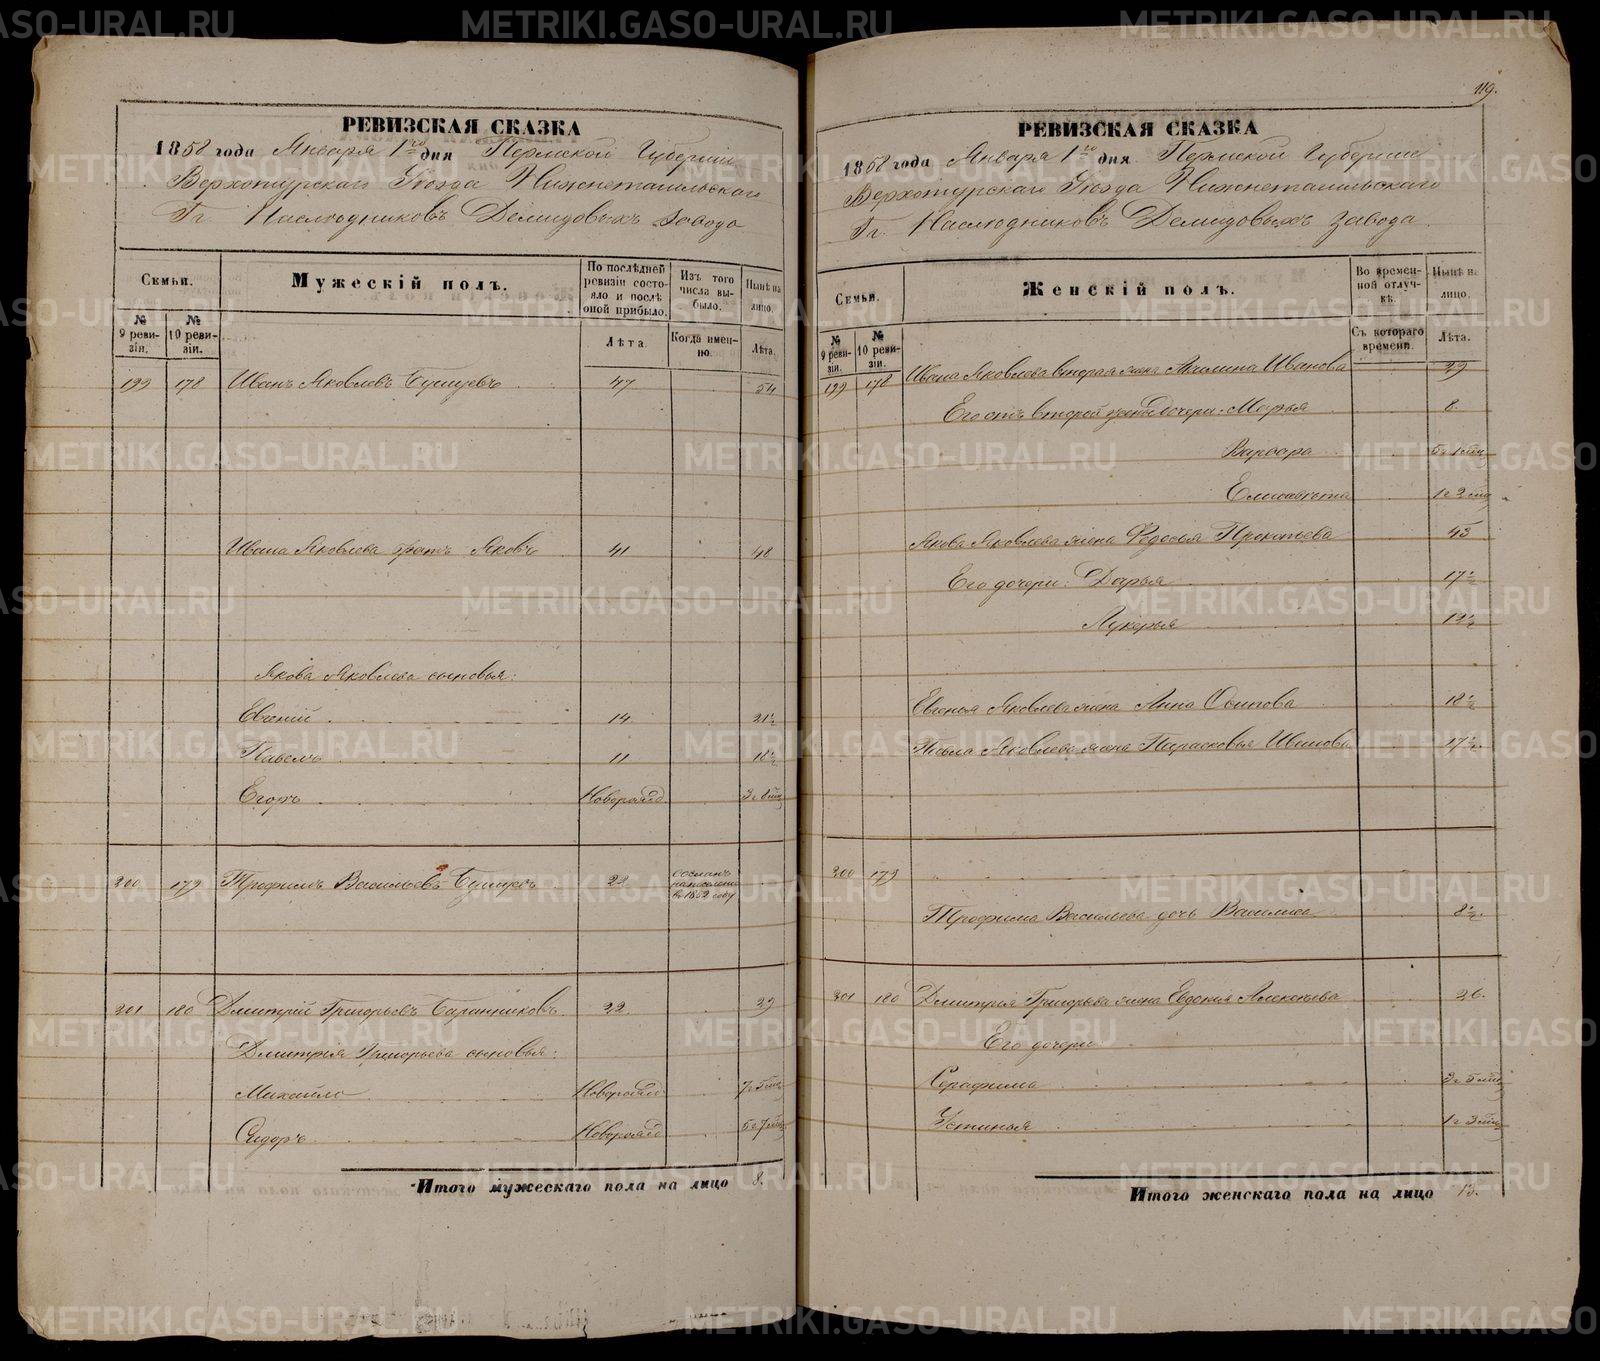 119.
РЕВИЗСКАЯ СКАЗКА
1858 года Января 1го дня Пермской Губернии
Верхотурскаго Уѣзда Нижнетагильскаго
Гг. Наслѣдниковъ Демидовыхъ завода
Семьи.
Мужескій полъ.
По послѣдней ревизіи состояло и послѣ оной прибыло.
Изъ того числа выбыло.
Нынѣ на лицо.
№ 9 ревизіи.
№ 10 ревизіи.
Лѣта.
Когда именно.
Лѣта.
199 178 Иванъ Яковлевъ 47 54
Ивана Яковлева братъ Яковъ 41 48
Якова Яковлева сыновья:
Евгеній 14 21½
Павелъ 11 18½
Егоръ Новорожд 3 г 8 мц
200 179 Трофимъ Васильевъ 22 сосланъ на поселение въ 1852 году
201 180 Дмитрій Григорьевъ Баранниковъ 22. 29
Дмитрія Григорьева сыновья:
Михайло Новорожд 7 г 5 мц
Сидоръ Новорожд 5 г 7 мц
Итого мужескаго пола на лицо 8.
РЕВИЗСКАЯ СКАЗКА
1858 года Января 1го дня Пермской Губернии
Верхотурскаго Уѣзда Нижнетагильскаго
Гг. Наслѣдниковъ Демидовыхъ завода
Семьи.
Женскій полъ.
Во временной отлучкѣ.
Нынѣ на лицо.
№ 9 ревизіи.
№ 10 ревизіи.
Съ котораго времени.
Лѣта.
199 178 Ивана Яковлева вторая жена Иванова 29
Его отъ второй жены дочери: Марья 8.
Варвара 5 г 1 мц
Елисавѣта 1 г 2 мц
Якова Яковлева жена Федосья Прокопьева 45
Его дочери: Дарья 17½
Лукерья 12½
Евгенья Яковлева жена Анна Осипова 18½
Павла Яковлева жена Парасковья Иванова 17½
200 179
Трофима Васильева дочь Василиса 8½
201 180 Дмитрія Григорьева жена Евдокия Алексѣева 26.
Его дочери:
Серафима 3 г 5 мц
Устинья 1 г 3 мц
Итого женскаго пола на лицо 13.
METRIKI.GASO-URAL.RU